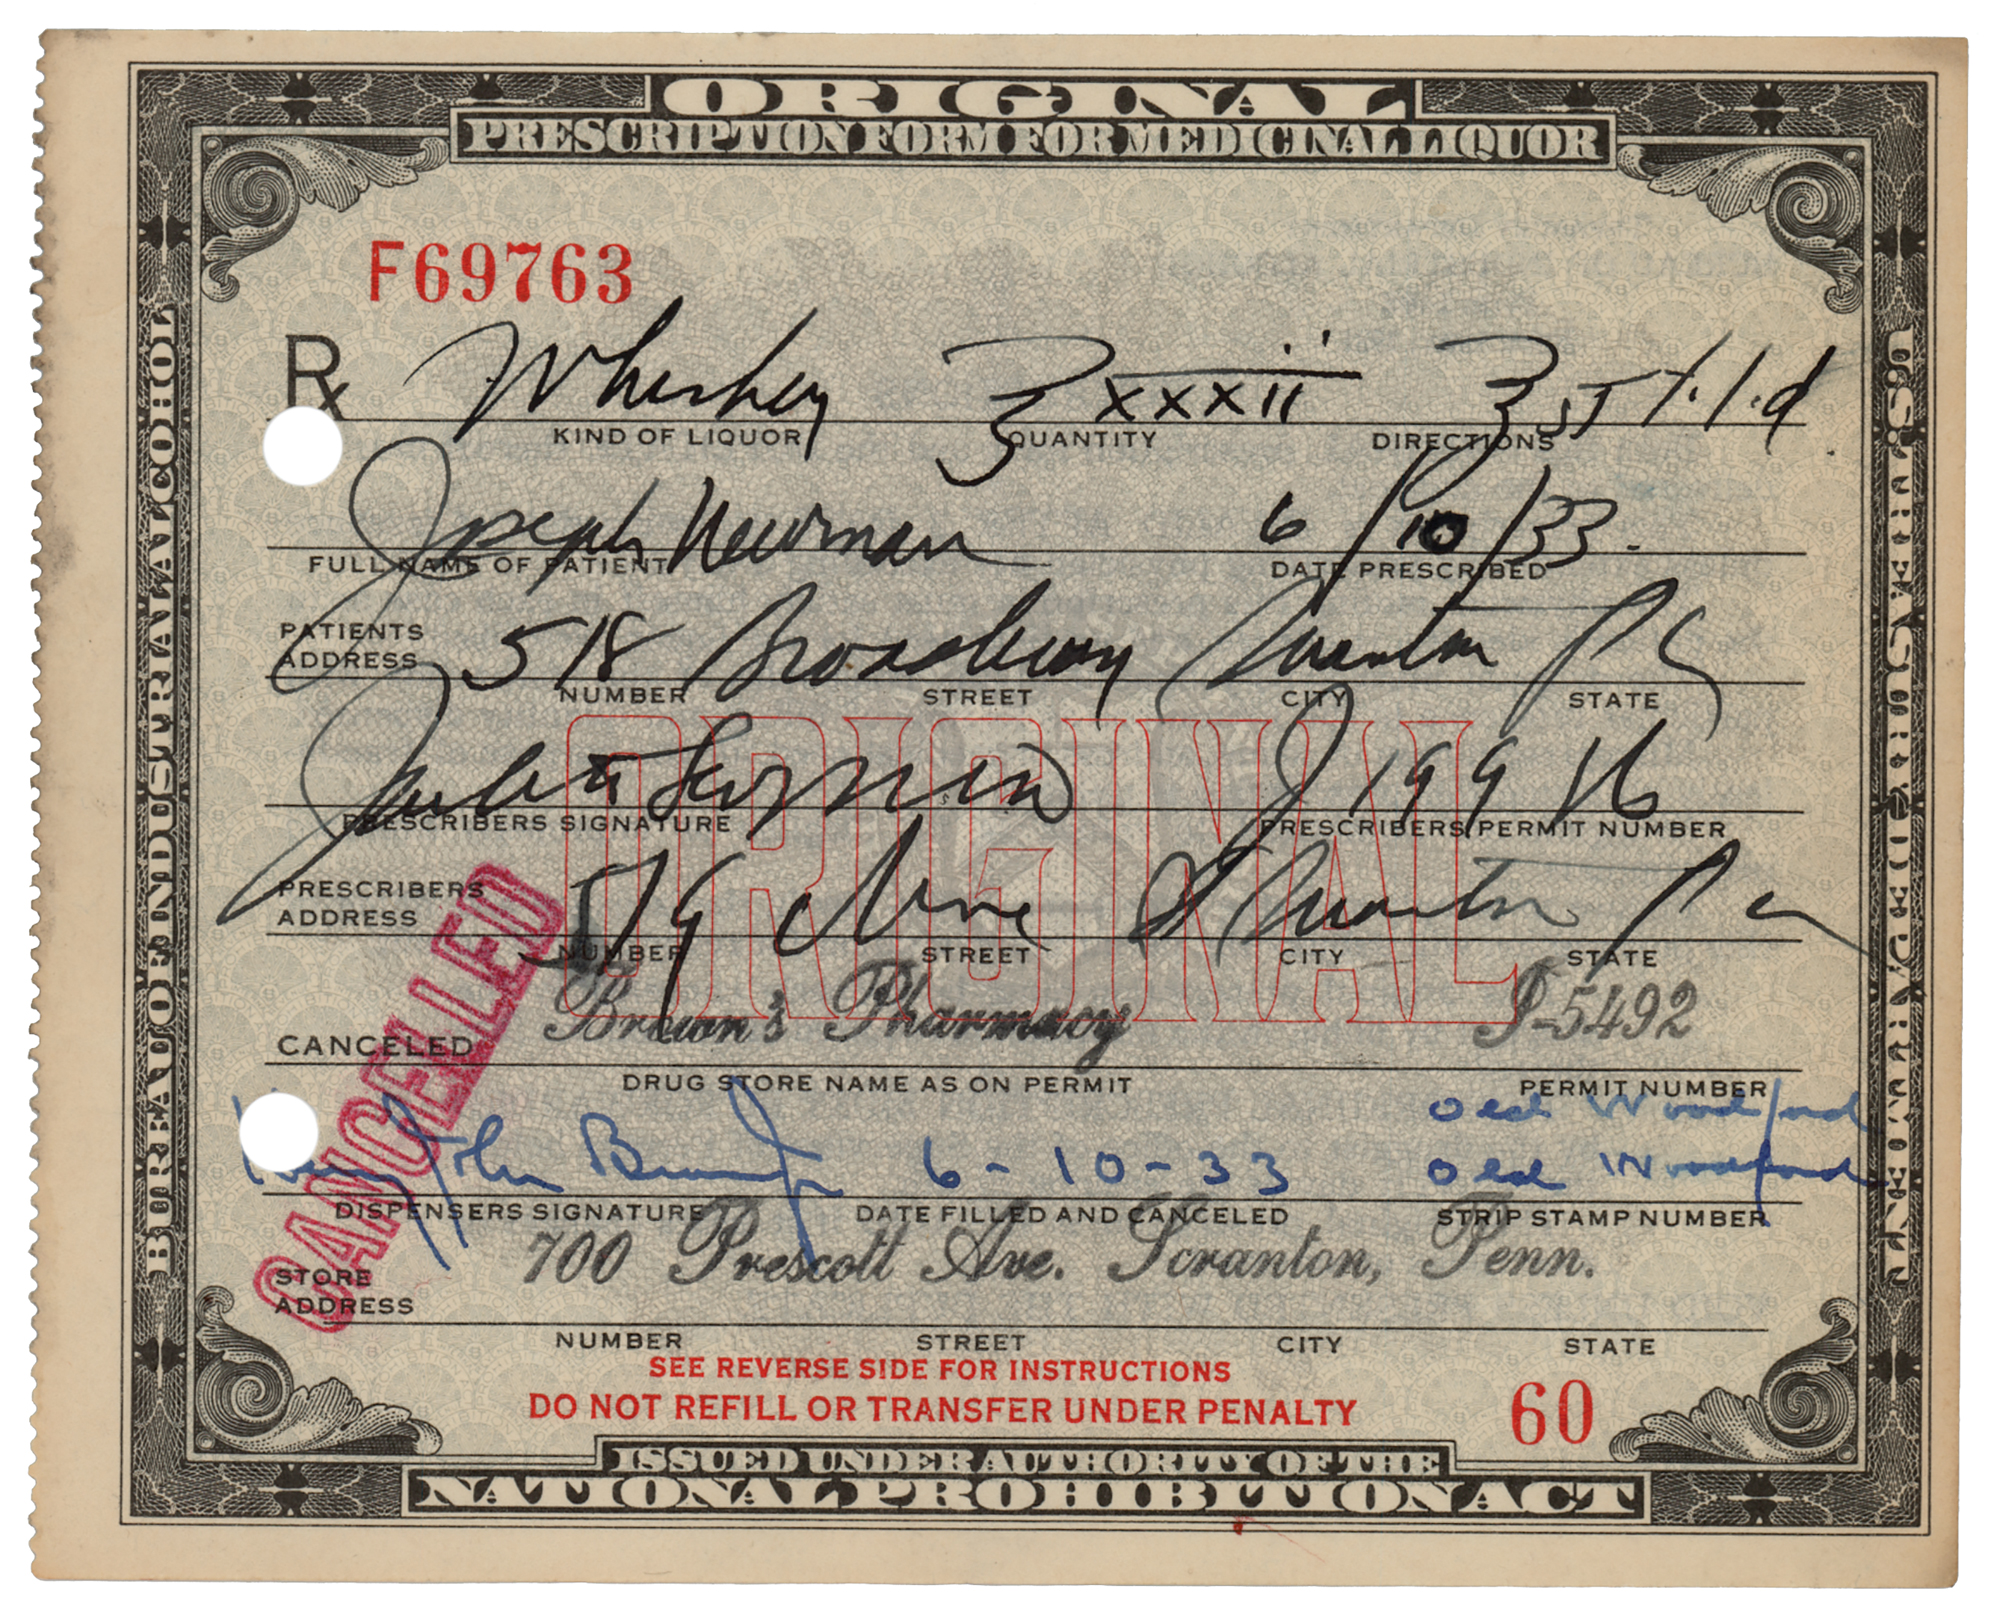 ORIGINAL
PRESCRIPTION FORM FOR MEDICINAL LIQUOR
BUREAU OF INDUSTRIAL ALCOHOL
U.S. TREASURY DEPARTMENT
F69763
Rx Whiskey ℥ xxxii ℥ t.i.d
KIND OF LIQUOR QUANTITY DIRECTIONS
Joseph Newman 6/10/33.
FULL NAME OF PATIENT DATE PRESCRIBED
PATIENTS
ADDRESS 518 Broadway Scranton Pa
NUMBER STREET CITY STATE
ORIGINAL
PRESCRIBERS SIGNATURE PRESCRIBERS PERMIT NUMBER
PRESCRIBERS
ADDRESS Scranton Pa
NUMBER STREET CITY STATE
CANCELED Brown's Pharmacy P-5492
DRUG STORE NAME AS ON PERMIT PERMIT NUMBER
CANCELLED
Old Woodford
John 6-10-33 Old Woodford
DISPENSERS SIGNATURE DATE FILLED AND CANCELED STRIP STAMP NUMBER
STORE
ADDRESS 700 Prescott Ave. Scranton, Penn.
NUMBER STREET CITY STATE
SEE REVERSE SIDE FOR INSTRUCTIONS
DO NOT REFILL OR TRANSFER UNDER PENALTY
60
ISSUED UNDER AUTHORITY OF THE
NATIONAL PROHIBITION ACT